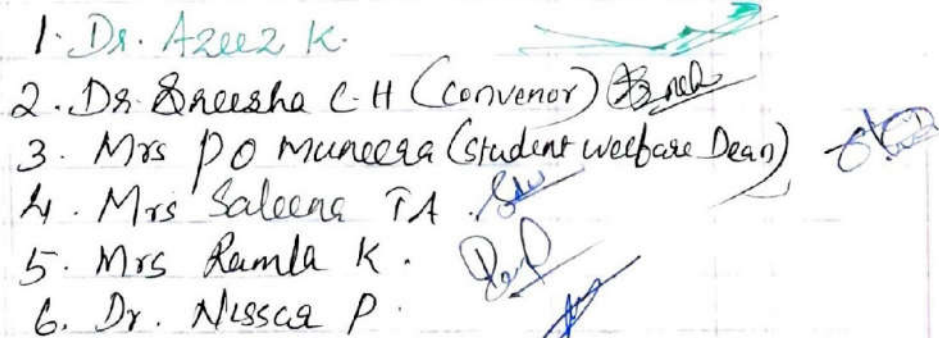 1. Dr. Azeez K.
2. Dr. Sreesha C.H (Convenor)
3. Mrs P O Muneera (Student Welfare Dean)
4. Mrs Saleena TA.
5. Mrs Ramla K.
6. Dr. Nissar P.